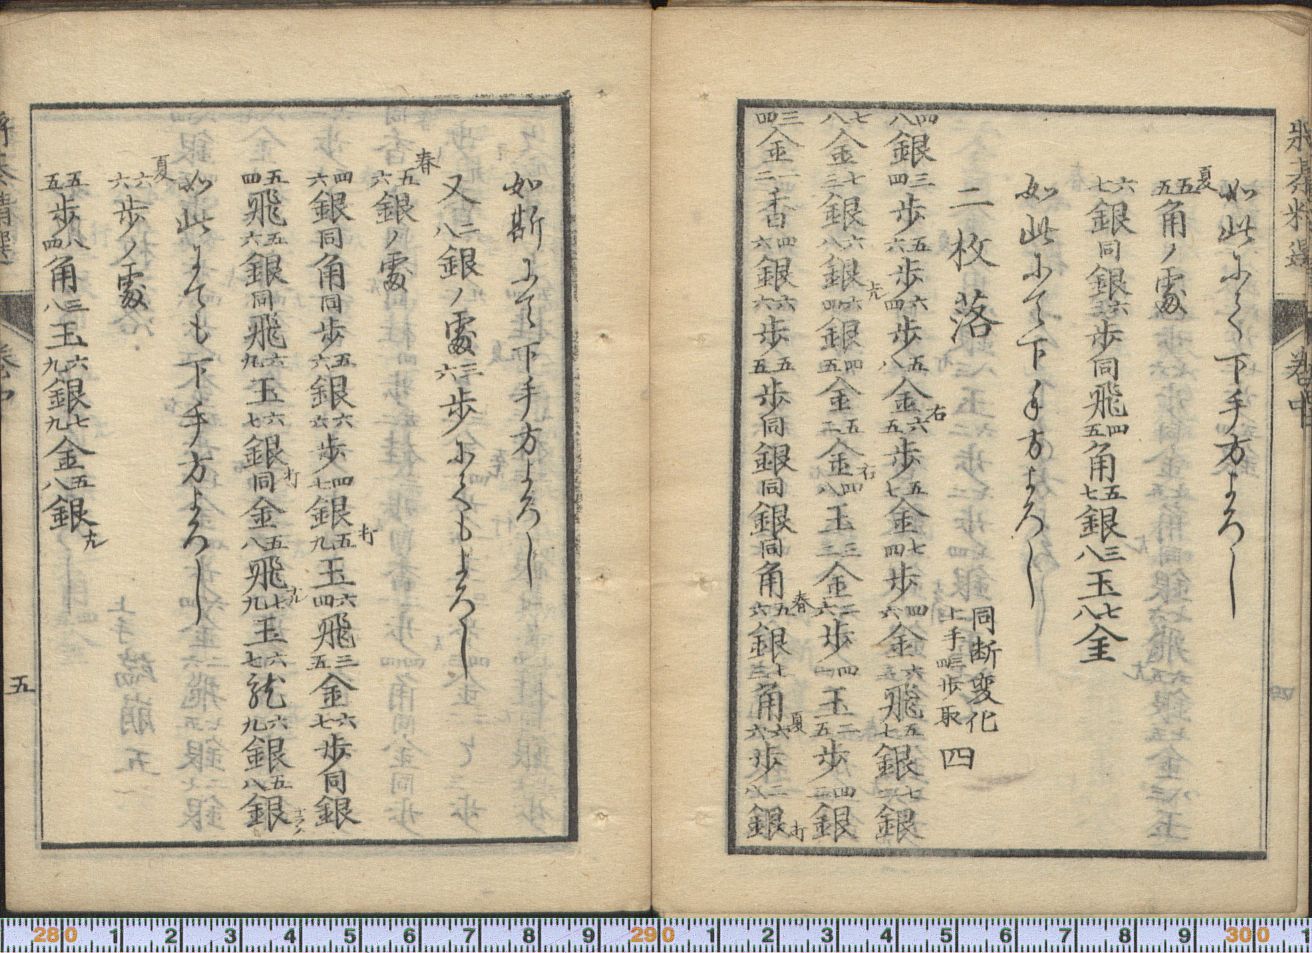 如此にて下手方よろし
夏
五五角ノ處
六七銀同銀六歩同飛四五角五七銀三八玉七八金
如此にて下手方よろし
二枚落
同断変化
上手四三歩取 四
四八銀三四歩五六歩六四歩五八金六五歩五七金七四歩四六金六五飛五七銀七銀
七八金七三銀六八銀六四銀四五金五二金四八玉三三金二六歩四一玉二五歩四銀
三四金一二香四六銀六六歩五五歩同銀同銀同角五六銀七三角六六歩二八銀打
将棊精選
巻中
如斯にて下手方よろし
又二八銀ノ處三六歩にてもよろし
春
五六銀ノ處
四六銀同角同歩五六銀六六歩四七銀打五九玉六四飛三五金六七歩同銀
五四飛五六銀同飛六九玉六七銀打同金五八飛七九玉六七龍六九銀五八銀
如此にても下手方よろし
夏
六六歩ノ處
五五歩八四角三八玉六九銀七九金五八銀
五